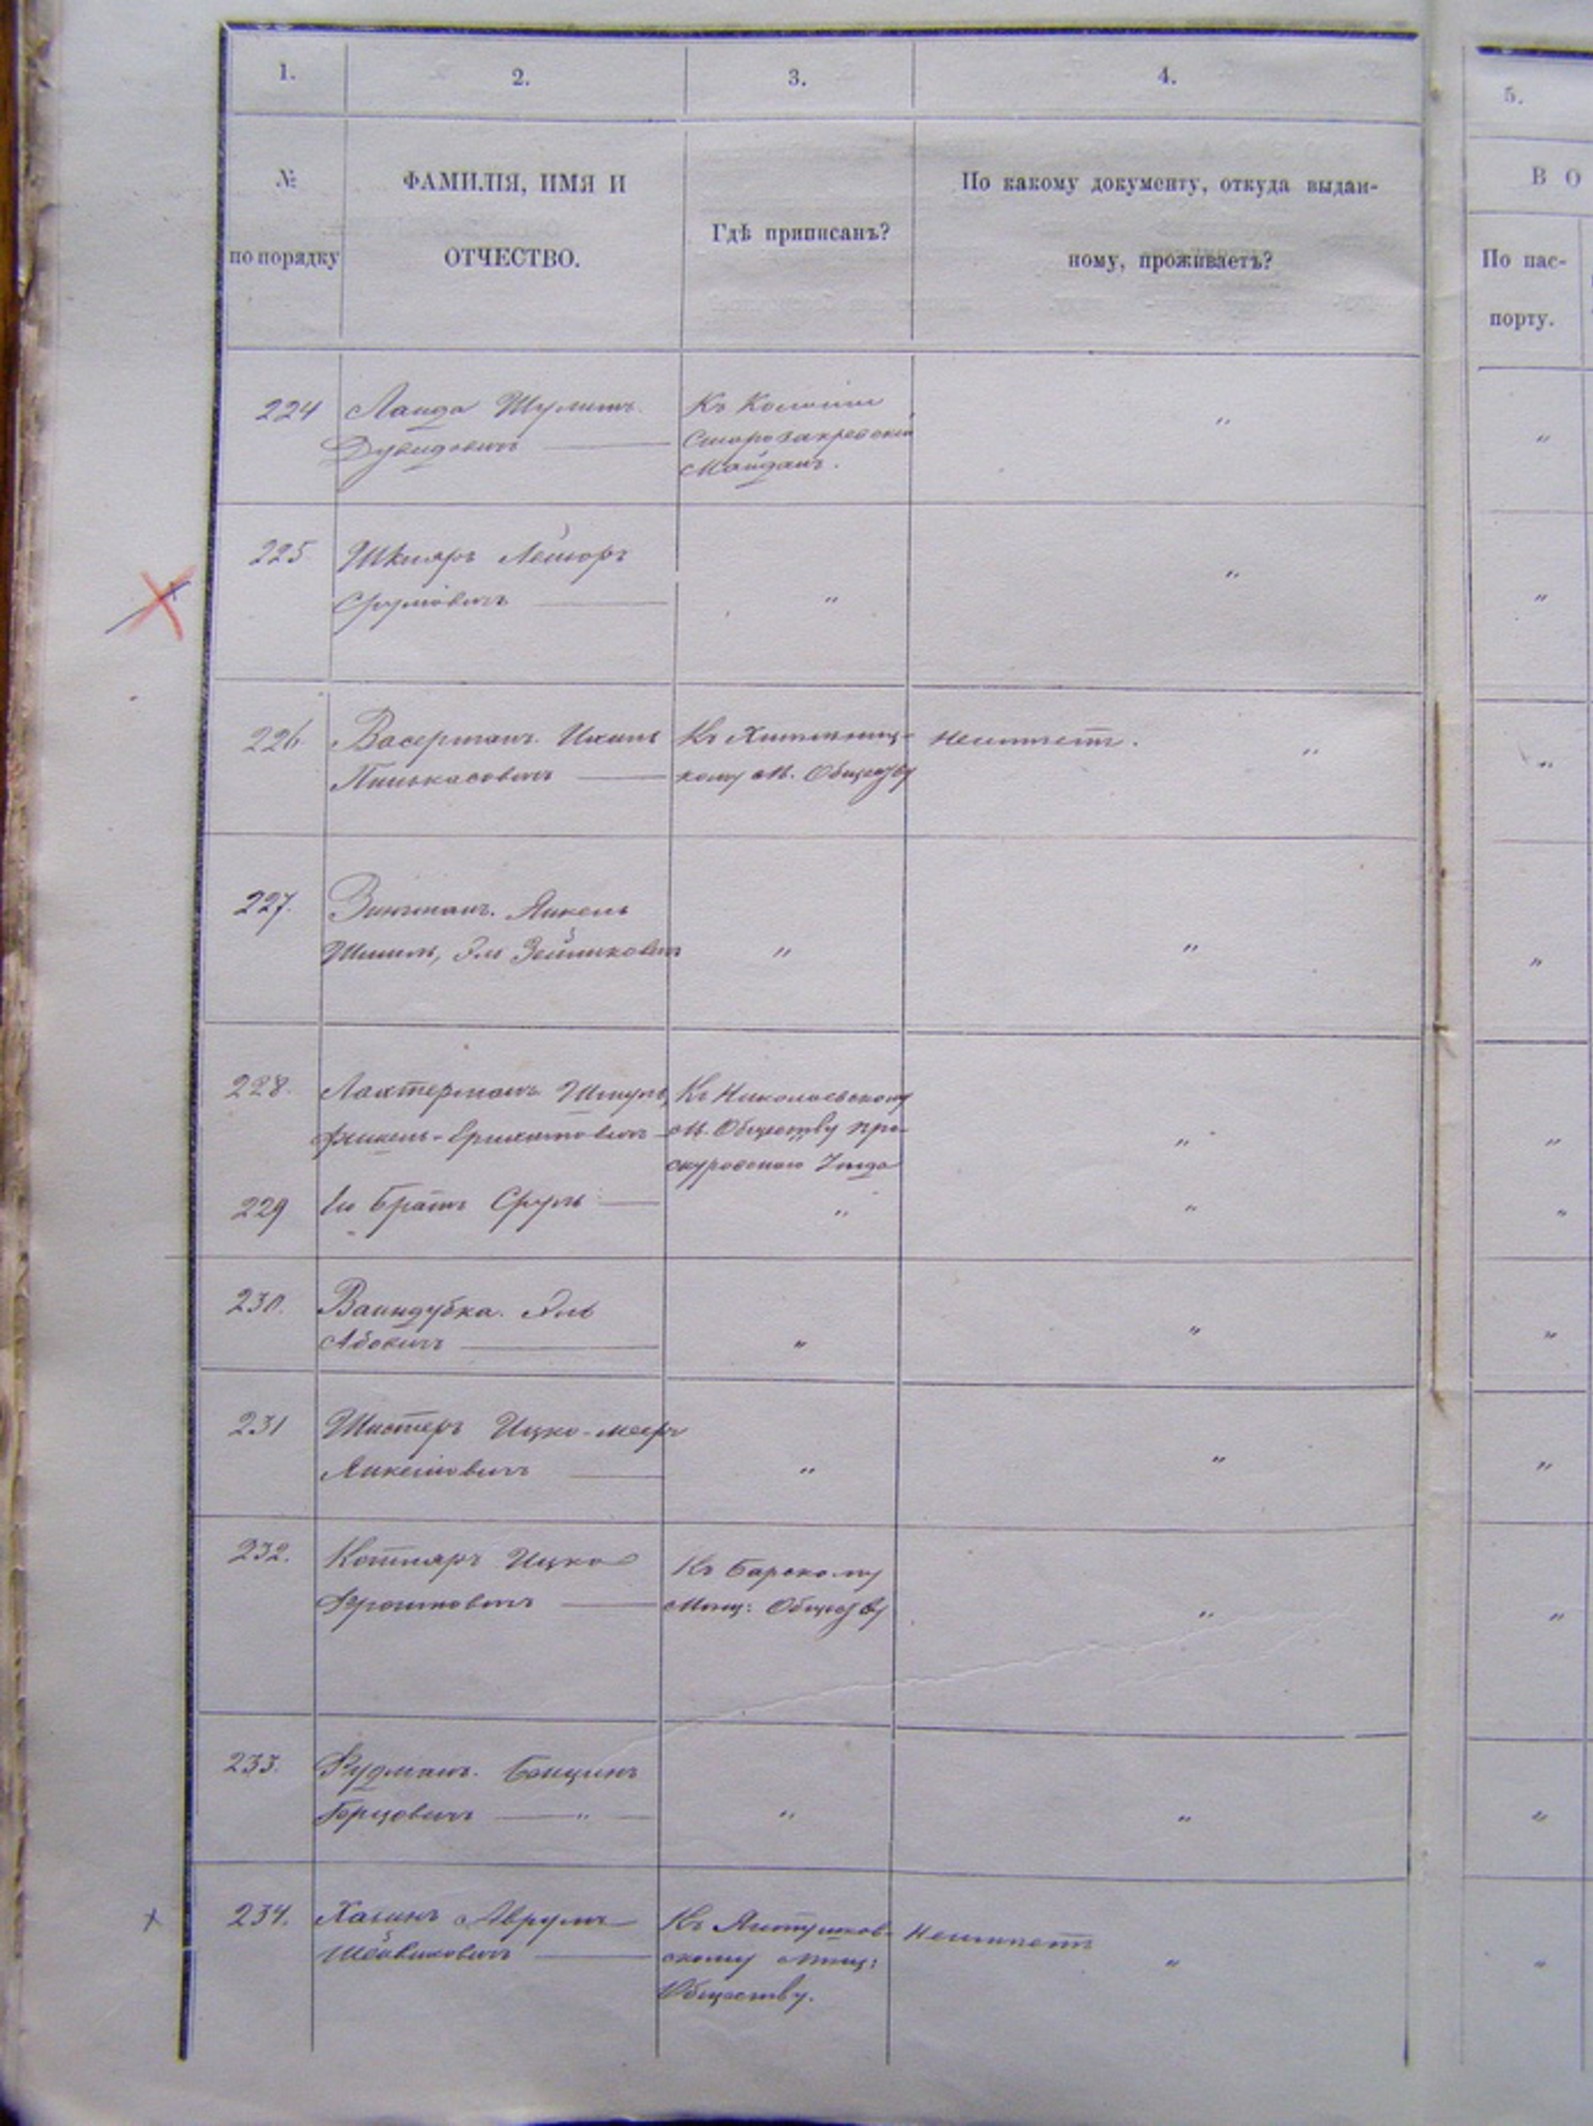 1.
2.
3.
4.
5.
№
по порядку
ФАМИЛІЯ, ИМЯ И
ОТЧЕСТВО.
Гдѣ приписанъ?
По какому документу, откуда выдан-
ному, проживаетъ?
В О
По пас-
порту.
224
Ланда Шулимъ
Дувидовичъ
Къ Колоніи
Старозакревскій
Майданъ.
"
"
225
Шкляръ Лейзоръ
Срулевичъ
"
"
"
226.
Васерманъ
Пинькасовичъ
Къ Хмельниц-
кому М. Обществу
Неимѣетъ.
"
"
227.
Янкель
Шмиль, Эль Зейликовичъ
"
"
"
228.
Лахтерманъ Шмуль,
Къ Николаевскому
М. Обществу Про-
скуровскаго Уѣзда
"
"
229
Его братъ Сруль
"
"
"
230.
Ваиндубка. Эль
Абовичъ
"
"
"
231
Шистеръ Ицко-Мееръ
Янкелевичъ
"
"
"
232.
Котляръ Ицко
Фроимовичъ
Къ Барскому
Мѣщ: Обществу
"
"
233.
Рудманъ.
Борцовичъ "
"
"
"
234.
Хасинъ Аврумъ
Шейвиковичъ
Къ Ялтушков-
скому Мѣщ:
Обществу.
Неимѣетъ
"
"